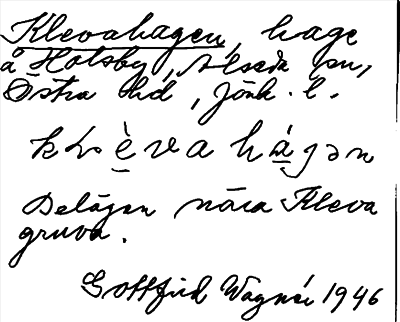 Klevahagen, hage
å Holsby, Alseda sn,
Östra hd, Jönk. l.
klèvahágən
Belägen nära Kleva
gruva.
Gottfrid Wagnér 1946